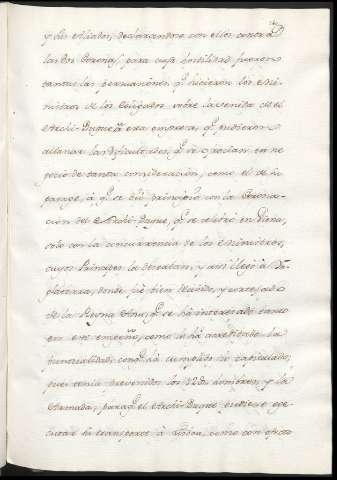 y sus Aliados, declarandose con ellos contra
las dos Coronas, para cuya hostilidad fueron
tantas las persuasiones, q.e hicieron los Mi-
nistros de los Coligados sobre la venida de el
Archi-Duque à esta empresa, q.e pudieron
allanar las dificultades, q.e se ofrecian en ne-
gocio de tanta consideracion, como el de su
passage, à q.e se diò principio con la Corona-
cion del Archi-Duque, q.e se celebrò en Viena,
solo con la concurrencia de los Ministros,
cuyos Principes la deseaban, y assi llegò à In-
glaterra, donde fuè bien tratado, y cortejado
de la Reyna Ana, q.e se hà interesado tanto
en este empeño, como lo hà acreditado la
puntualidad, con q.e hà cumplido lo capitulado,
pues tenia prevenidos los 12U hombres, y la
Armada, para q.e el Archi-Duque pudiesse exe-
cutar su transporte à Lisboa, como con efecto